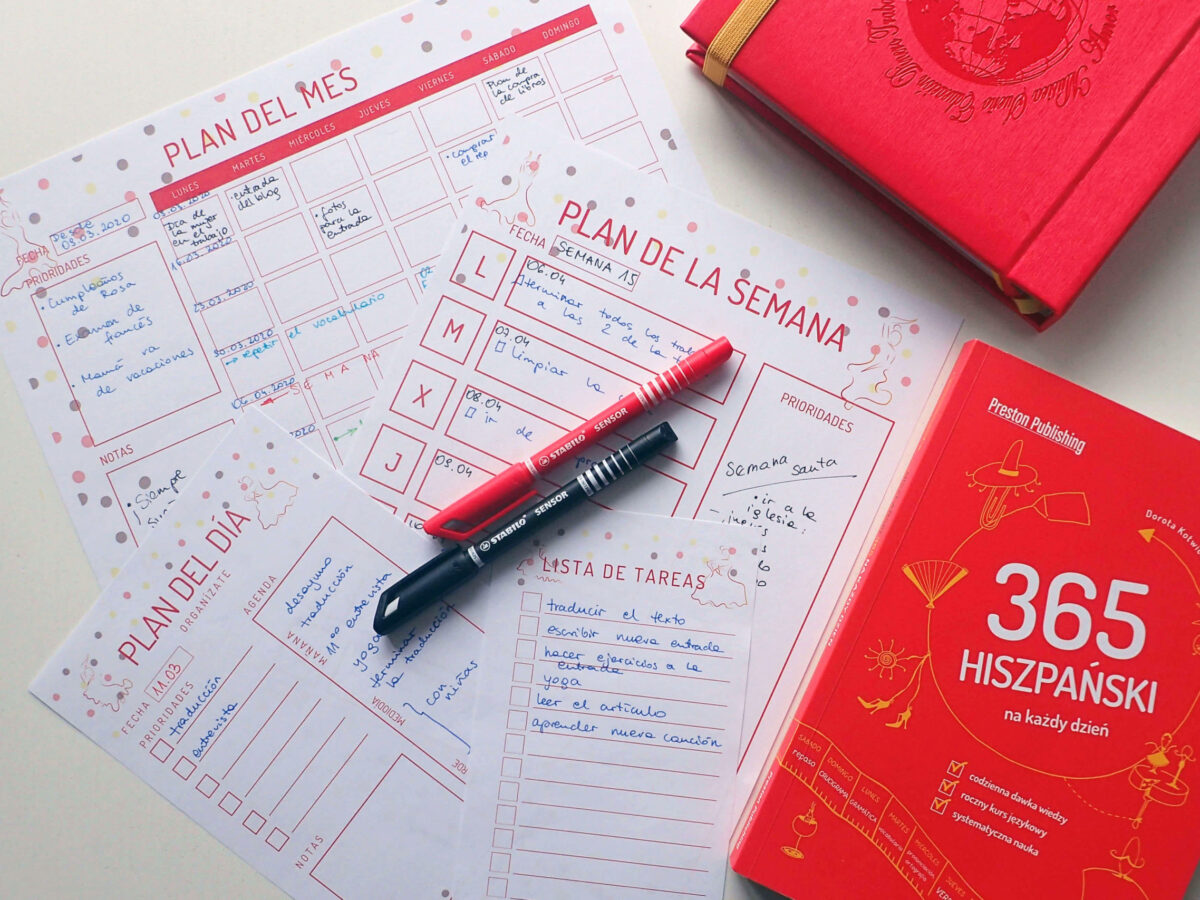 PLAN DEL MES
LUNES MARTES MIÉRCOLES JUEVES VIERNES SÁBADO DOMINGO
FECHA
DESDE
09.03.2020
PRIORIDADES
• Cumpleaños
de Rosa
• Examen de
francés
• Mamá va
de vacaciones
NOTAS
¡Siempre
09.03.2020
Día de
la mujer
en el
trabajo
• entrada
del blog
• fotos
para la
entrada
• comprar
el
Plan de
la compra
de libros
23.03.2020
30.03.2020
→ repetir el vocabulario
06.04.2020
SEMANA
PLAN DE LA SEMANA
FECHA
SEMANA 15
L
06.04
terminar todos los
a las 2 de la
M
07.04
limpiar la
X
08.04
ir de
J
09.04
PRIORIDADES
Semana santa
• ir a la
iglesia
PLAN DEL DÍA
ORGANÍZATE
FECHA
11.03
PRIORIDADES
traducción
entrevista
AGENDA
MAÑANA
desayuno
traducción
11:00 entrevista
yoga
MEDIODÍA
terminar
la traducción
con
niñas
RDE
NOTAS
LISTA DE TAREAS
traducir el texto
escribir nueva entrada
hacer ejercicios a la
entrada
yoga
leer el artículo
aprender nueva canción
STABILO SENSOR
STABILO SENSOR
Preston Publishing
Dorota
365
HISZPAŃSKI
na każdy dzień
codzienna dawka wiedzy
roczny kurs językowy
systematyczna nauka
SÁBADO DOMINGO LUNES MARTES MIÉRCOLES JUEVES
repaso CRUCIGRAMA GRAMÁTICA vocabulario